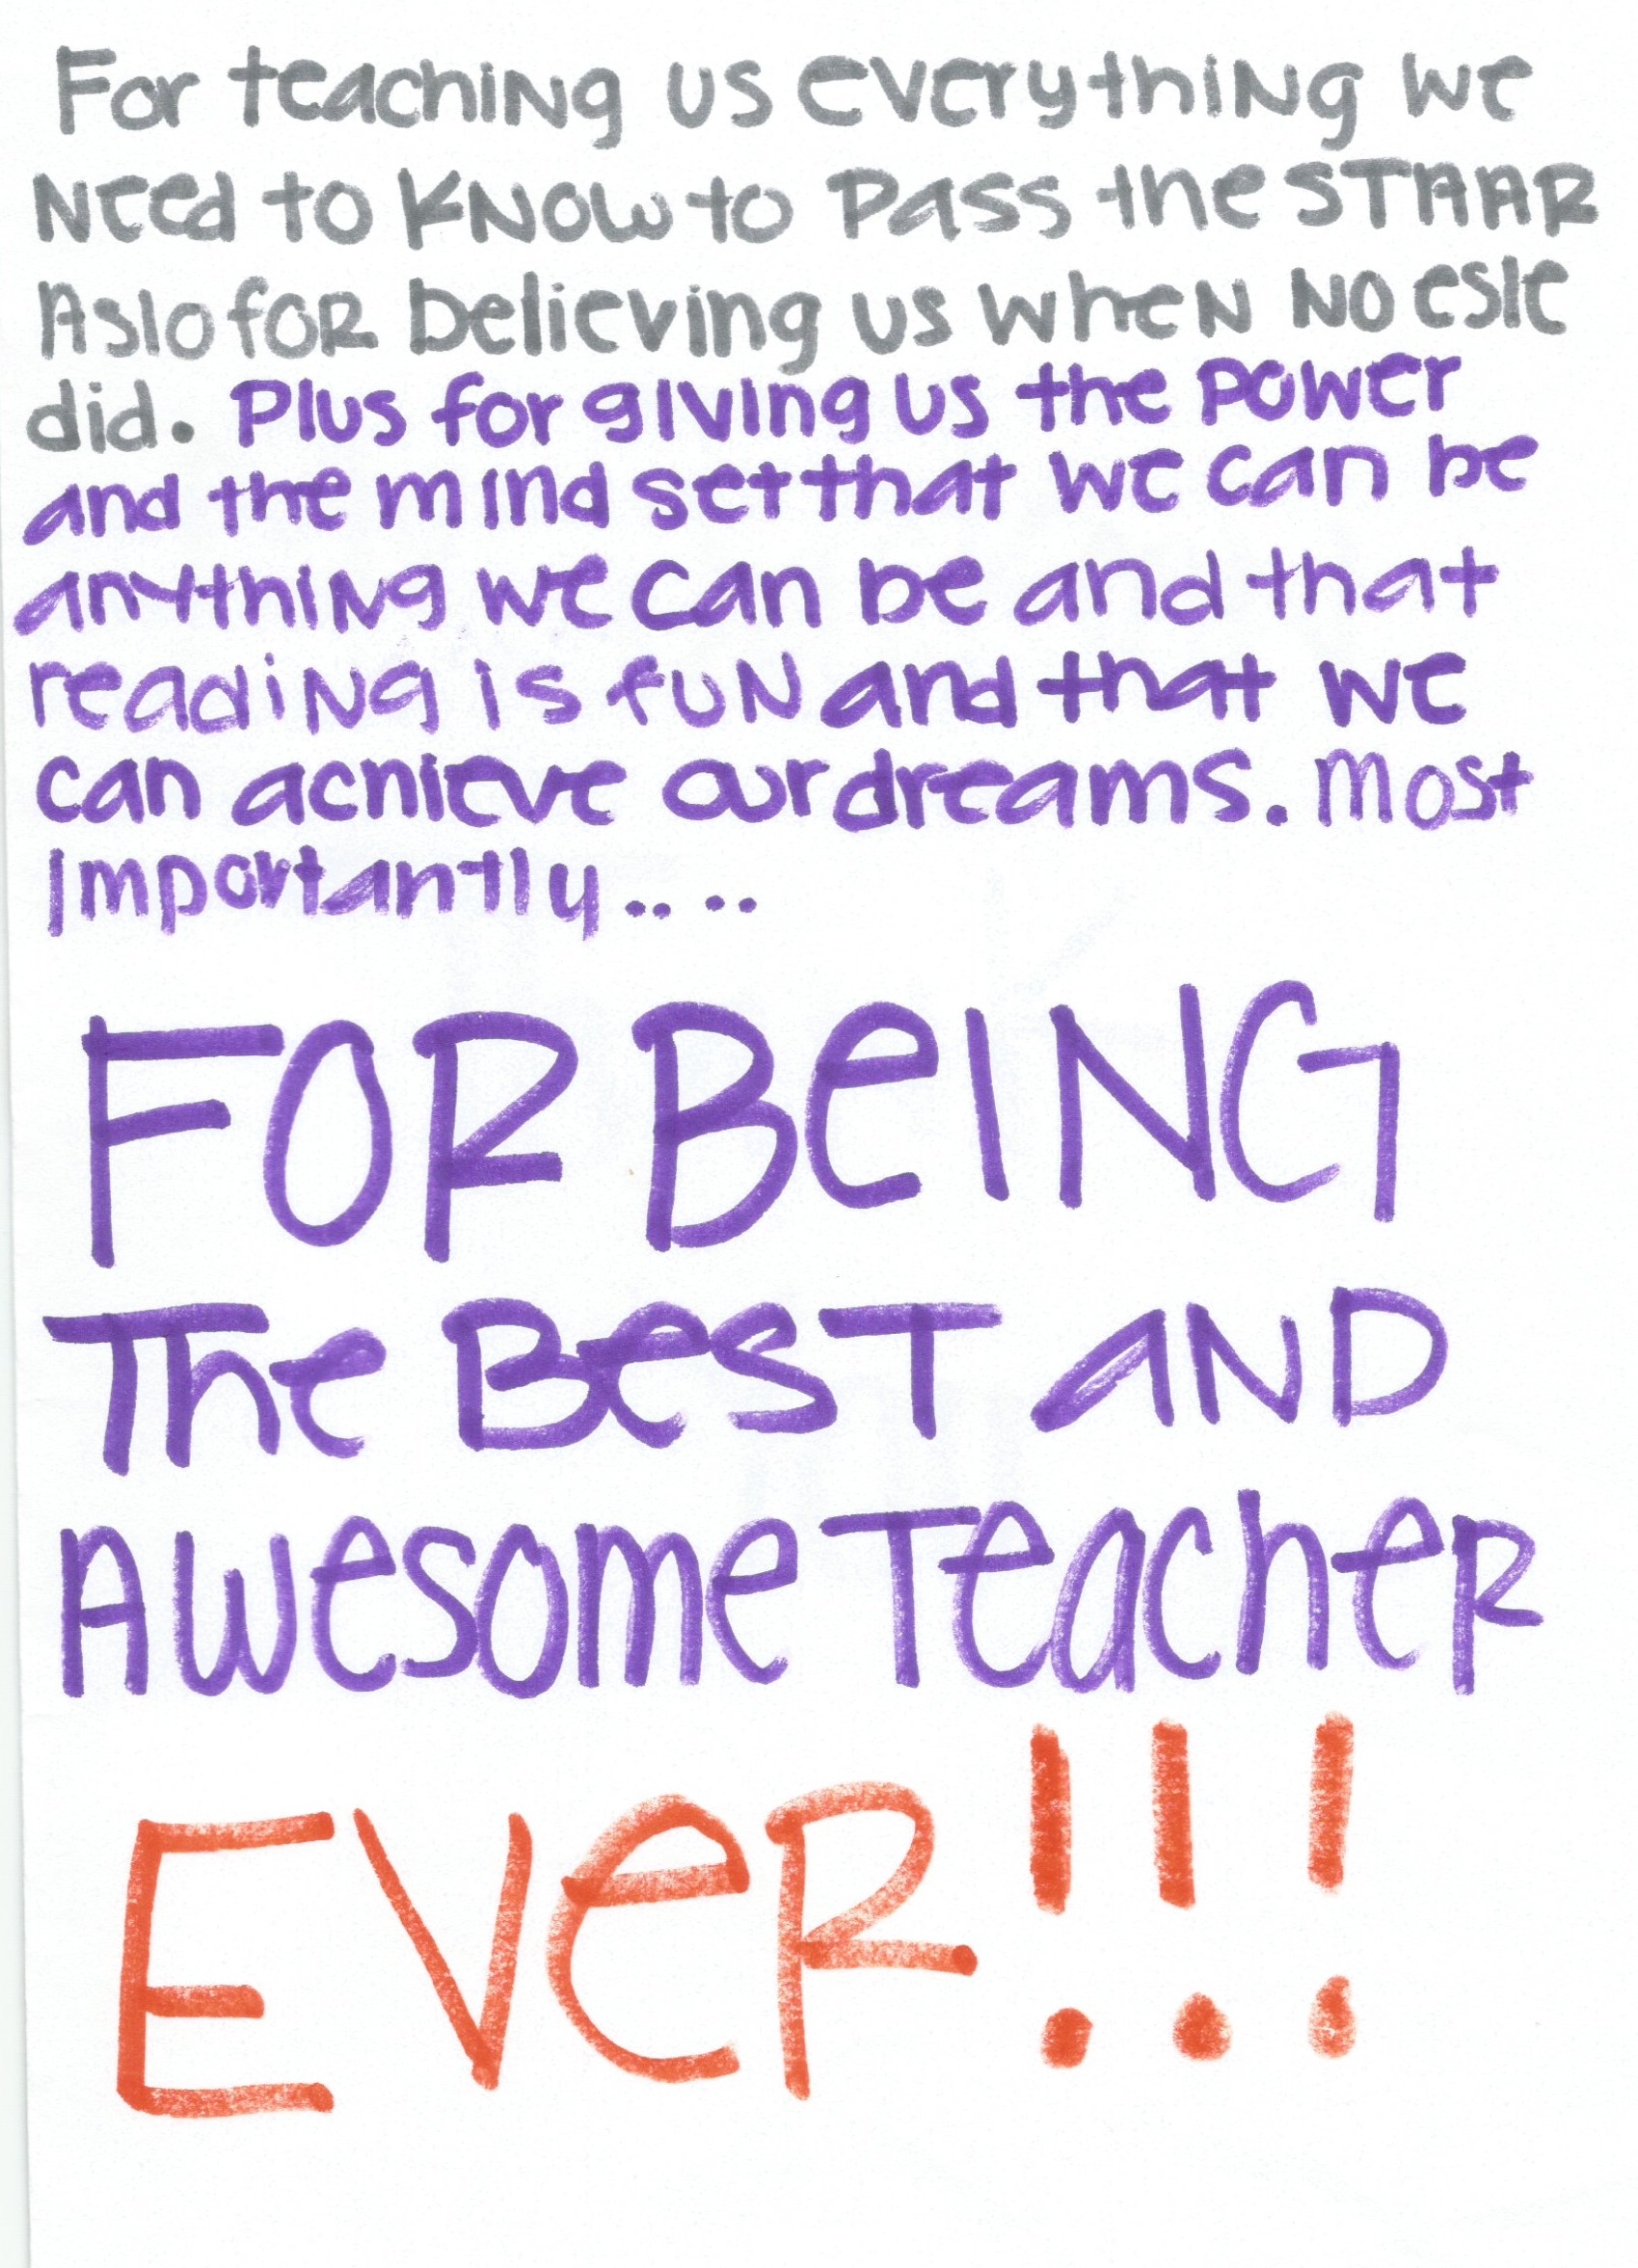 For teaching us everything we
Need to KNow to Pass the STAAR
Aslo foR believing us when No esle
did. Plus for giving us the power
and the mind set that we can be
anything we can be and that
reading is fuN and that we
can achieve our dreams. Most
Importantly.. ..
FOR BeING
The BesT aND
Awesome TeacheR
EVeR!!!